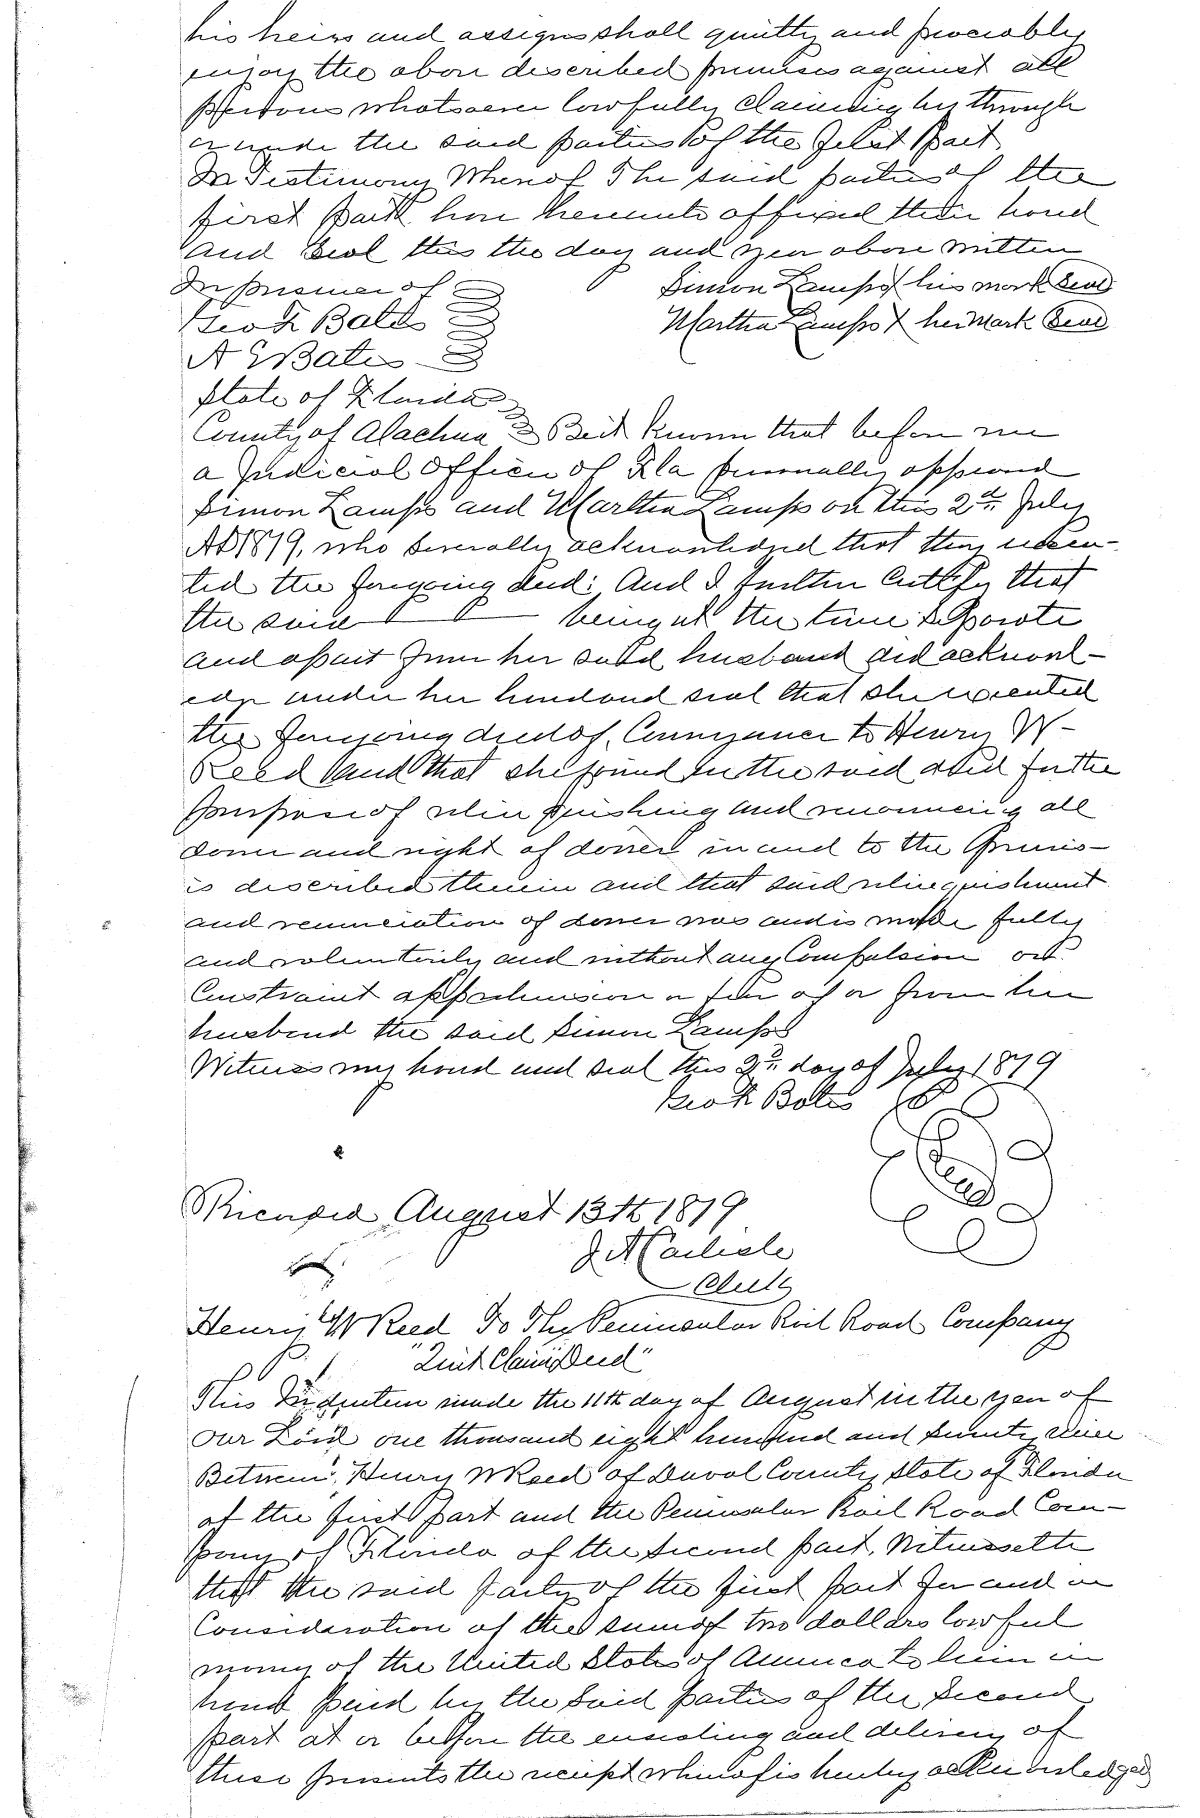 his heirs and assigns shall quietly and peaceably
enjoy the above described premises against all
persons whatsoever lawfully claiming by through
or under the said parties of the first Part
In Testimony Whereof The said parties of the
first part have hereunto affixed their hand
and Seal this the day and year above written
In presence of Simon Lamps X his mark Seal
Geo K Bates Martha Lamps X her Mark Seal
A E Bates
State of Florida
County of Alachua Be it known that before me
a Judicial Officer of Fla personally appeared
Simon Lamps and Martha Lamps on this 2nd July
AD 1879, who severally acknowledged that they execu-
ted the foregoing deed: And I further Certify that
the said being at the time separate
and apart from her said husband did acknowl-
edge under her hand and seal that she executed
the foregoing deed of Conveyance to Henry W
Reed and that she joined in the said deed for the
purpose of relinquishing and renouncing all
dower and right of dower in and to the Premis-
is discribed therein and that said relinquishment
and renunciation of dower was and is made fully
and voluntarily and without any Compulsion or
Constraint apprehension or fear of or from her
husband the said Simon Lamps
Witness my hand and seal this 2nd day of July 1879
Geo K Bates
Seal
Recorded August 13th 1879
J A Carlisle
Clerk
Henry W Reed To The Peninsular Rail Road Company
"Quit Claim Deed"
This Indenture made the 11th day of August in the year of
our Lord one thousand eight hundred and seventy nine
Between Henry W Reed of Duval County State of Florida
of the first part and the Peninsular Rail Road Com-
pany of Florida of the second part, Witnesseth
that the said party of the first part for and in
Consideration of the sum of two dollars lawful
money of the United States of America to him in
hand paid by the said parties of the second
part at or before the ensealing and delivery of
these presents the receipt whereof is hereby acknowledged